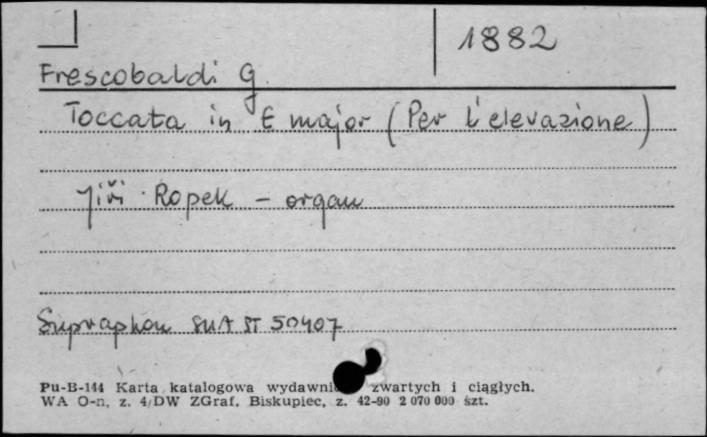 1882
Frescobaldi G.
Toccata in E major (Per l'elevazione)
Jiří Ropek - organ
Supraphon SUA ST 50407
Pu-B-144 Karta katalogowa zwartych i ciągłych.
WA O-n, z. 4/DW ZGraf. Biskupiec, z. 42-90 2 070 000 szt.